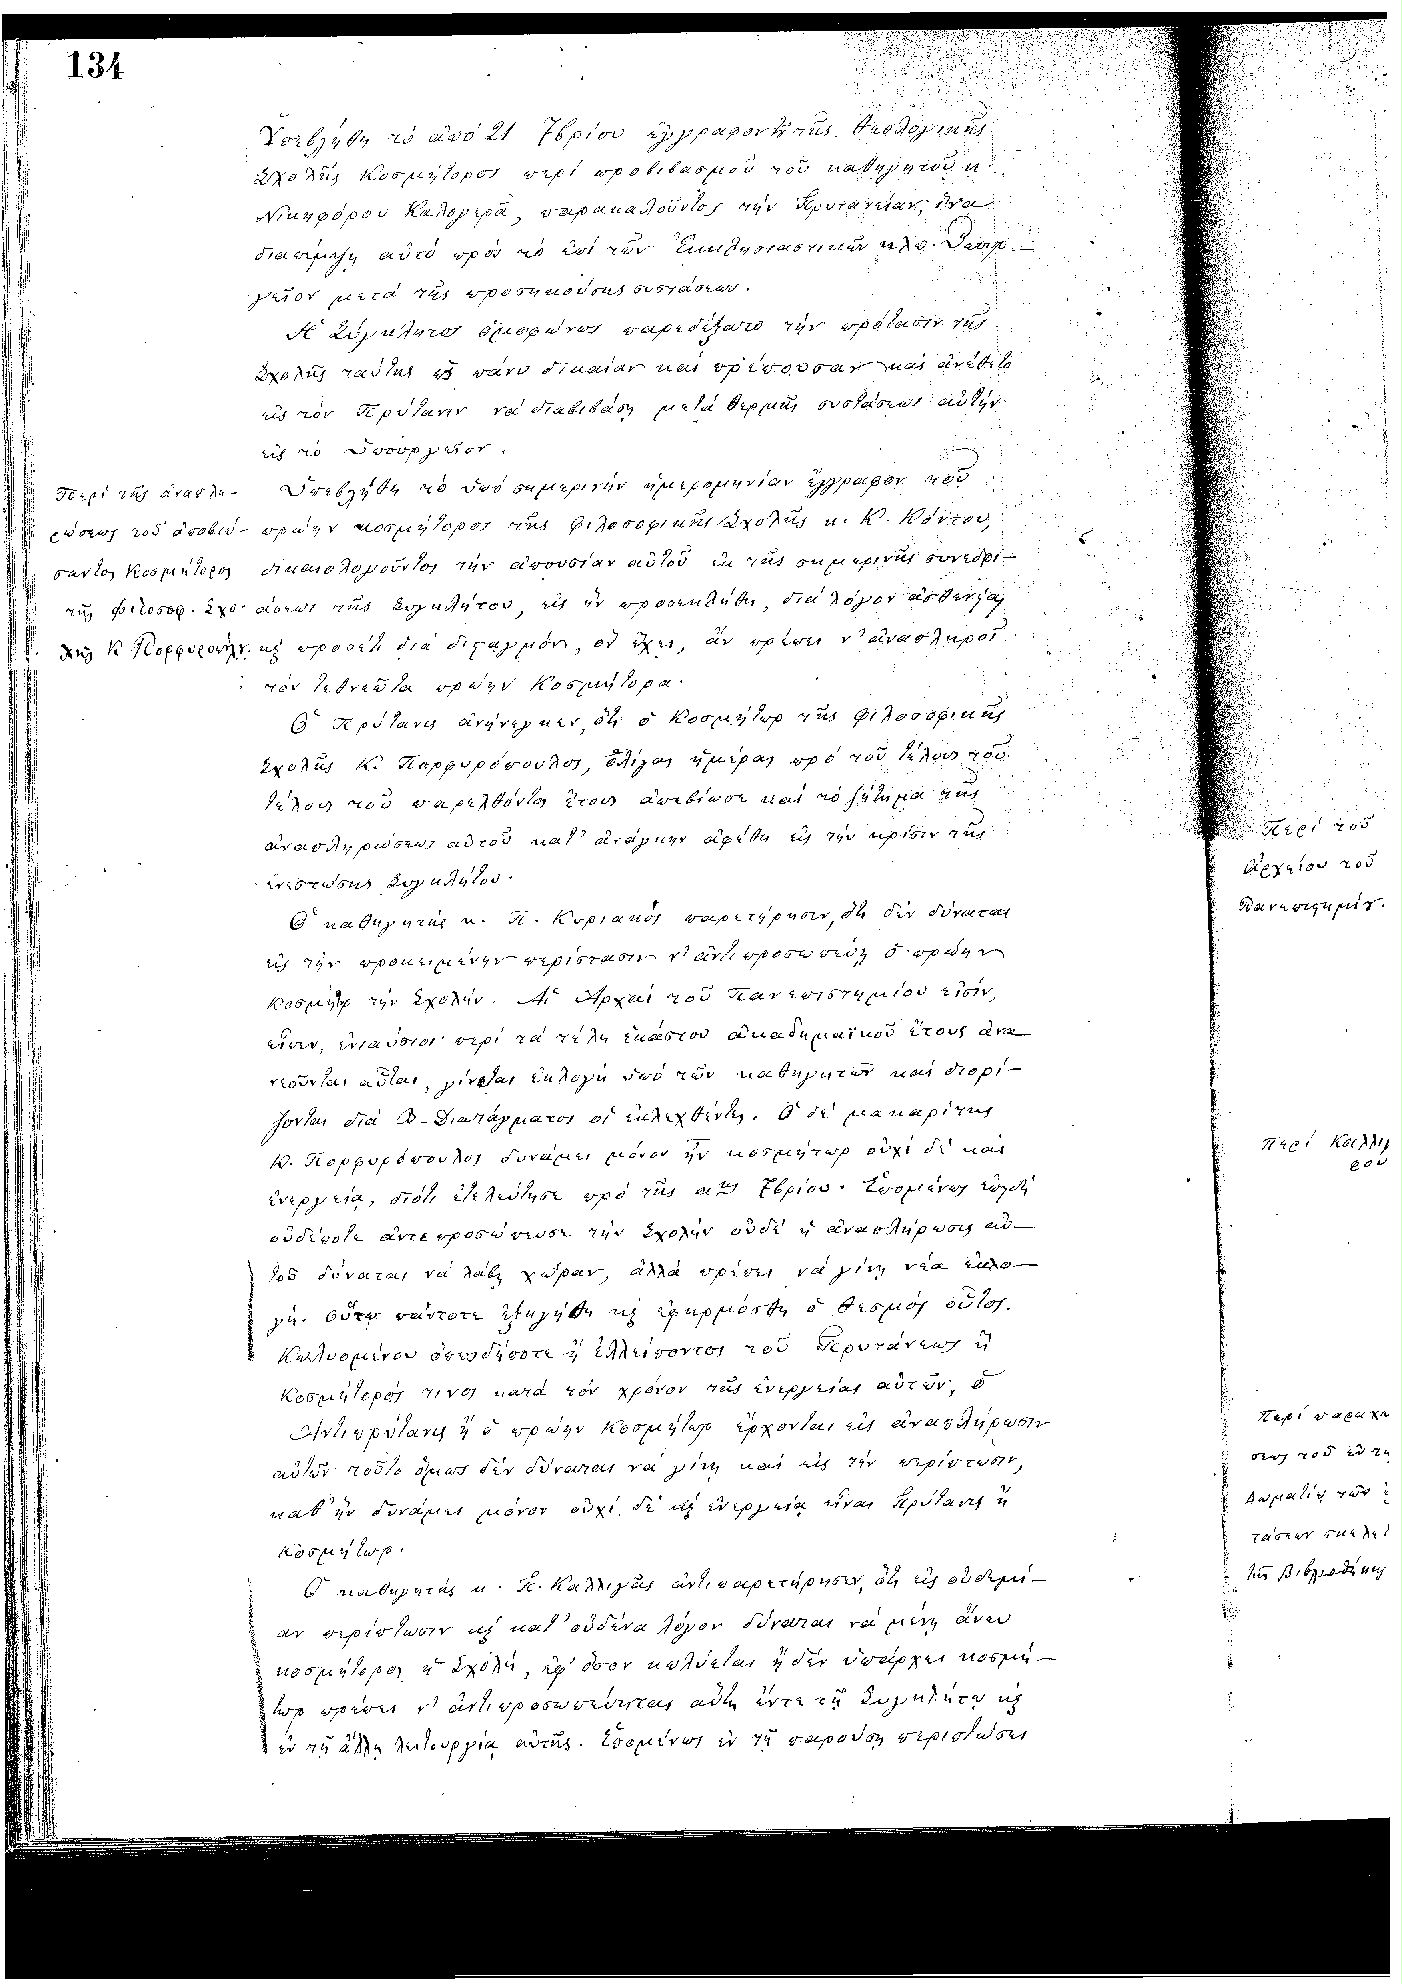 134
Ὑπεβλήθη τὸ ἀπὸ 21 7βρίου ἔγγραφον τῆς Θεολογικῆς
Σχολῆς Κοσμήτορος περὶ προβιβασμοῦ τοῦ καθηγητοῦ κ.
Νικηφόρου Καλογερᾶ, παρακαλοῦντος τὴν Πρυτανείαν, ἵνα
διαπέμψῃ αὐτὸ πρὸς τὸ ἐπὶ τῶν Ἐκκλησιαστικῶν κλπ. Ὑπουρ-
γεῖον μετὰ τῆς προσηκούσης συστάσεως.
Ἡ Σύγκλητος ὁμοφώνως παρεδέξατο τὴν πρότασιν τῆς
Σχολῆς ταύτης ὡς πάνυ δικαίαν καὶ πρέπουσαν καὶ ἀνέθετο
εἰς τὸν Πρύτανιν νὰ διαβιβάσῃ μετὰ θερμῆς συστάσεως αὐτὴν
εἰς τὸ Ὑπουργεῖον.
Περὶ τῆς ἀναπλη-
ρώσεως τοῦ ἀποβιώ-
σαντος Κοσμήτορος
τῆς Φιλοσοφ. Σχο-
λῆς Κ Πορφυροπούλ.
Ὑπεβλήθη τὸ ὑπὸ σημερινὴν ἡμερομηνίαν ἔγγραφον τοῦ
πρώην κοσμήτορος τῆς Φιλοσοφικῆς Σχολῆς κ. Κ. Κόντου,
δικαιολογοῦντος τὴν ἀπουσίαν αὐτοῦ ἐκ τῆς σημερινῆς συνεδρι-
άσεως τῆς Συγκλήτου, εἰς ἣν προσεκλήθη, διὰ λόγον ἀσθενείας
κὶ προσέτι διὰ δισταγμόν, ὃν ἔχει, ἂν πρέπει ν' ἀναπληροῖ
τὸν τεθνεῶτα πρώην Κοσμήτορα.
Ὁ Πρύτανις ἀνήνεγκεν, ὅτι ὁ Κοσμήτωρ τῆς Φιλοσοφικῆς
Σχολῆς Κ. Πορφυρόπουλος, ὀλίγας ἡμέρας πρὸ τοῦ τέλους τοῦ
τέλους τοῦ παρελθόντος ἔτους ἀπεβίωσε καὶ τὸ ζήτημα τῆς
ἀναπληρώσεως αὐτοῦ κατ' ἀνάγκην ἀφέθη εἰς τὴν κρίσιν τῆς
ἐνεστώσης Συγκλήτου.
Ὁ καθηγητὴς κ. Π. Κυριακὸς παρετήρησεν, ὅτι δὲν δύναται
εἰς τὴν προκειμένην περίστασιν ν' ἀντιπροσωπεύῃ ὁ πρώην
κοσμήτωρ τὴν Σχολήν. Αἱ Ἀρχαὶ τοῦ Πανεπιστημίου εἰσίν,
εἶπεν, ἐνιαύσιοι· περὶ τὰ τέλη ἑκάστου ἀκαδημαϊκοῦ ἔτους ἀνα-
νεοῦνται αὗται, γίνεται ἐκλογὴ ὑπὸ τῶν καθηγητῶν καὶ διορί-
ζονται διὰ Β. Διατάγματος οἱ ἐκλεχθέντες. Ὁ δὲ μακαρίτης
Κ. Πορφυρόπουλος δυνάμει μόνον ἦν κοσμήτωρ οὐχὶ δὲ καὶ
ἐνεργείᾳ, διότι ἐτελεύτησε πρὸ τῆς αης 7βρίου. Ἑπομένως ἐπειδὴ
οὐδέποτε ἀντεπροσώπευσε τὴν Σχολὴν οὐδὲ ἡ ἀναπλήρωσις αὐ-
τοῦ δύναται νὰ λάβῃ χώραν, ἀλλὰ πρέπει νὰ γίνῃ νέα ἐκλο-
γή. Οὕτω πάντοτε ἐξηγήθη κὶ ἐφηρμόσθη ὁ θεσμὸς οὗτος.
Κωλυομένου ὁπωσδήποτε ἢ ἐλλείποντος τοῦ Πρυτάνεως ἢ
Κοσμήτορός τινος κατὰ τὸν χρόνον τῆς ἐνεργείας αὐτῶν, ὁ
Ἀντιπρύτανις ἢ ὁ πρώην Κοσμήτωρ ἔρχονται εἰς ἀναπλήρωσιν
αὐτῶν τοῦτο ὅμως δὲν δύναται νὰ γίνῃ καὶ εἰς τὴν περίπτωσιν,
καθ' ἣν δυνάμει μόνον οὐχὶ δὲ κὶ ἐνεργείᾳ εἶναι Πρύτανις ἢ
κοσμήτωρ.
Ὁ καθηγητὴς κ. Π. Καλλιγᾶς ἀντιπαρετήρησεν, ὅτι εἰς οὐδεμί-
αν περίπτωσιν κὶ κατ' οὐδένα λόγον δύναται νὰ μένῃ ἄνευ
κοσμήτορος ἡ Σχολή, ἐφ' ὅσον κωλύεται ἢ δὲν ὑπάρχει κοσμή-
τωρ πρέπει ν' ἀντιπροσωπεύηται αὕτη ἔν τε τῇ Συγκλήτῳ κὶ
ἐν τῇ ἄλλῃ λειτουργίᾳ αὐτῆς. Ἑπομένως ἐν τῇ παρούσῃ περιπτώσει
Περὶ τοῦ
Ἀρχείου τοῦ
Πανεπιστημίου.
Περὶ Καλλιγ
ρου
Περὶ παραχω
σεως τοῦ ἐν τῷ
Δωματίῳ τῶν
τῆς Βιβλιοθήκης